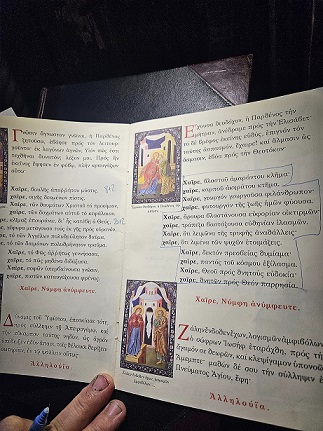 Γνῶσιν ἄγνωστον γνῶναι, ἡ Παρθένος
ζητοῦσα, ἐβόησε πρὸς τὸν λειτουρ-
γοῦντα· ἐκ λαγόνων ἁγνῶν, Υἱὸν πῶς ἔστι
τεχθῆναι δυνατόν; λέξον μοι. Πρὸς ἣν
ἐκεῖνος ἔφησεν ἐν φόβῳ, πλὴν κραυγάζων
οὕτω·
Χαῖρε, βουλῆς ἀπορρήτου μύστις,
χαῖρε, σιγῆς δεομένων πίστις.
Χαῖρε, τῶν θαυμάτων Χριστοῦ τὸ προοίμιον,
χαῖρε, τῶν δογμάτων αὐτοῦ τὸ κεφάλαιον.
κλῖμαξ ἐπουράνιε, δι' ἧς κατέβη ὁ Θεός,
γέφυρα μετάγουσα τοὺς ἐκ γῆς πρὸς οὐρανόν.
τὸ τῶν Ἀγγέλων πολυθρύλητον θαῦμα,
τὸ τῶν δαιμόνων πολυθρήνητον τραῦμα.
τὸ Φῶς ἀρρήτως γεννήσασα,
τὸ πῶς μηδένα διδάξασα.
σοφῶν ὑπερβαίνουσα γνῶσιν,
πιστῶν καταυγάζουσα φρένας.
Χαῖρε, Νύμφη ἀνύμφευτε.
Δύναμις τοῦ Ὑψίστου, ἐπεσκίασε τότε,
πρὸς σύλληψιν τῇ Ἀπειρογάμῳ, καὶ
τὴν εὔκαρπον ταύτης νηδύν, ὡς ἀγρὸν
ὑπέδειξεν ἡδὺν ἅπασι, τοῖς θέλουσι θερίζειν
Ἀλληλούϊα.
Ἔχουσα θεοδόχον, ἡ Παρθένος τὴν
μήτραν, ἀνέδραμε πρὸς τὴν Ἐλισάβετ·
τὸ δὲ βρέφος ἐκείνης εὐθύς, ἐπιγνὸν τὸν
ταύτης ἀσπασμόν, ἔχαιρε! καὶ ἅλμασιν ὡς
ᾄσμασιν, ἐβόα πρὸς τὴν Θεοτόκον·
Χαῖρε, βλαστοῦ ἀμαράντου κλῆμα,
χαῖρε, καρποῦ ἀκηράτου κτῆμα.
Χαῖρε, γεωργὸν γεωργοῦσα φιλάνθρωπον·
χαῖρε, φυτουργὸν τῆς ζωῆς ἡμῶν φύουσα.
Χαῖρε, ἄρουρα βλαστάνουσα εὐφορίαν οἰκτιρμῶν·
χαῖρε, τράπεζα βαστάζουσα εὐθηνίαν ἱλασμῶν.
Χαῖρε, ὅτι λειμῶνα τῆς τρυφῆς ἀναθάλλεις·
χαῖρε, ὅτι λιμένα τῶν ψυχῶν ἑτοιμάζεις.
Χαῖρε, δεκτὸν πρεσβείας θυμίαμα·
χαῖρε, παντὸς τοῦ κόσμου ἐξίλασμα.
Χαῖρε, Θεοῦ πρὸς θνητοὺς εὐδοκία·
χαῖρε, θνητῶν πρὸς Θεὸν παρρησία.
Χαῖρε, Νύμφη ἀνύμφευτε.
Ζάλην ἔνδοθεν ἔχων, λογισμῶν ἀμφιβόλων,
ὁ σώφρων Ἰωσὴφ ἐταράχθη, πρὸς τὴν
ἄγαμόν σε θεωρῶν, καὶ κλεψίγαμον ὑπονοῶν
Ἄμεμπτε· μαθὼν δέ σου τὴν σύλληψιν ἐκ
Πνεύματος Ἁγίου, ἔφη·
Ἀλληλούϊα.